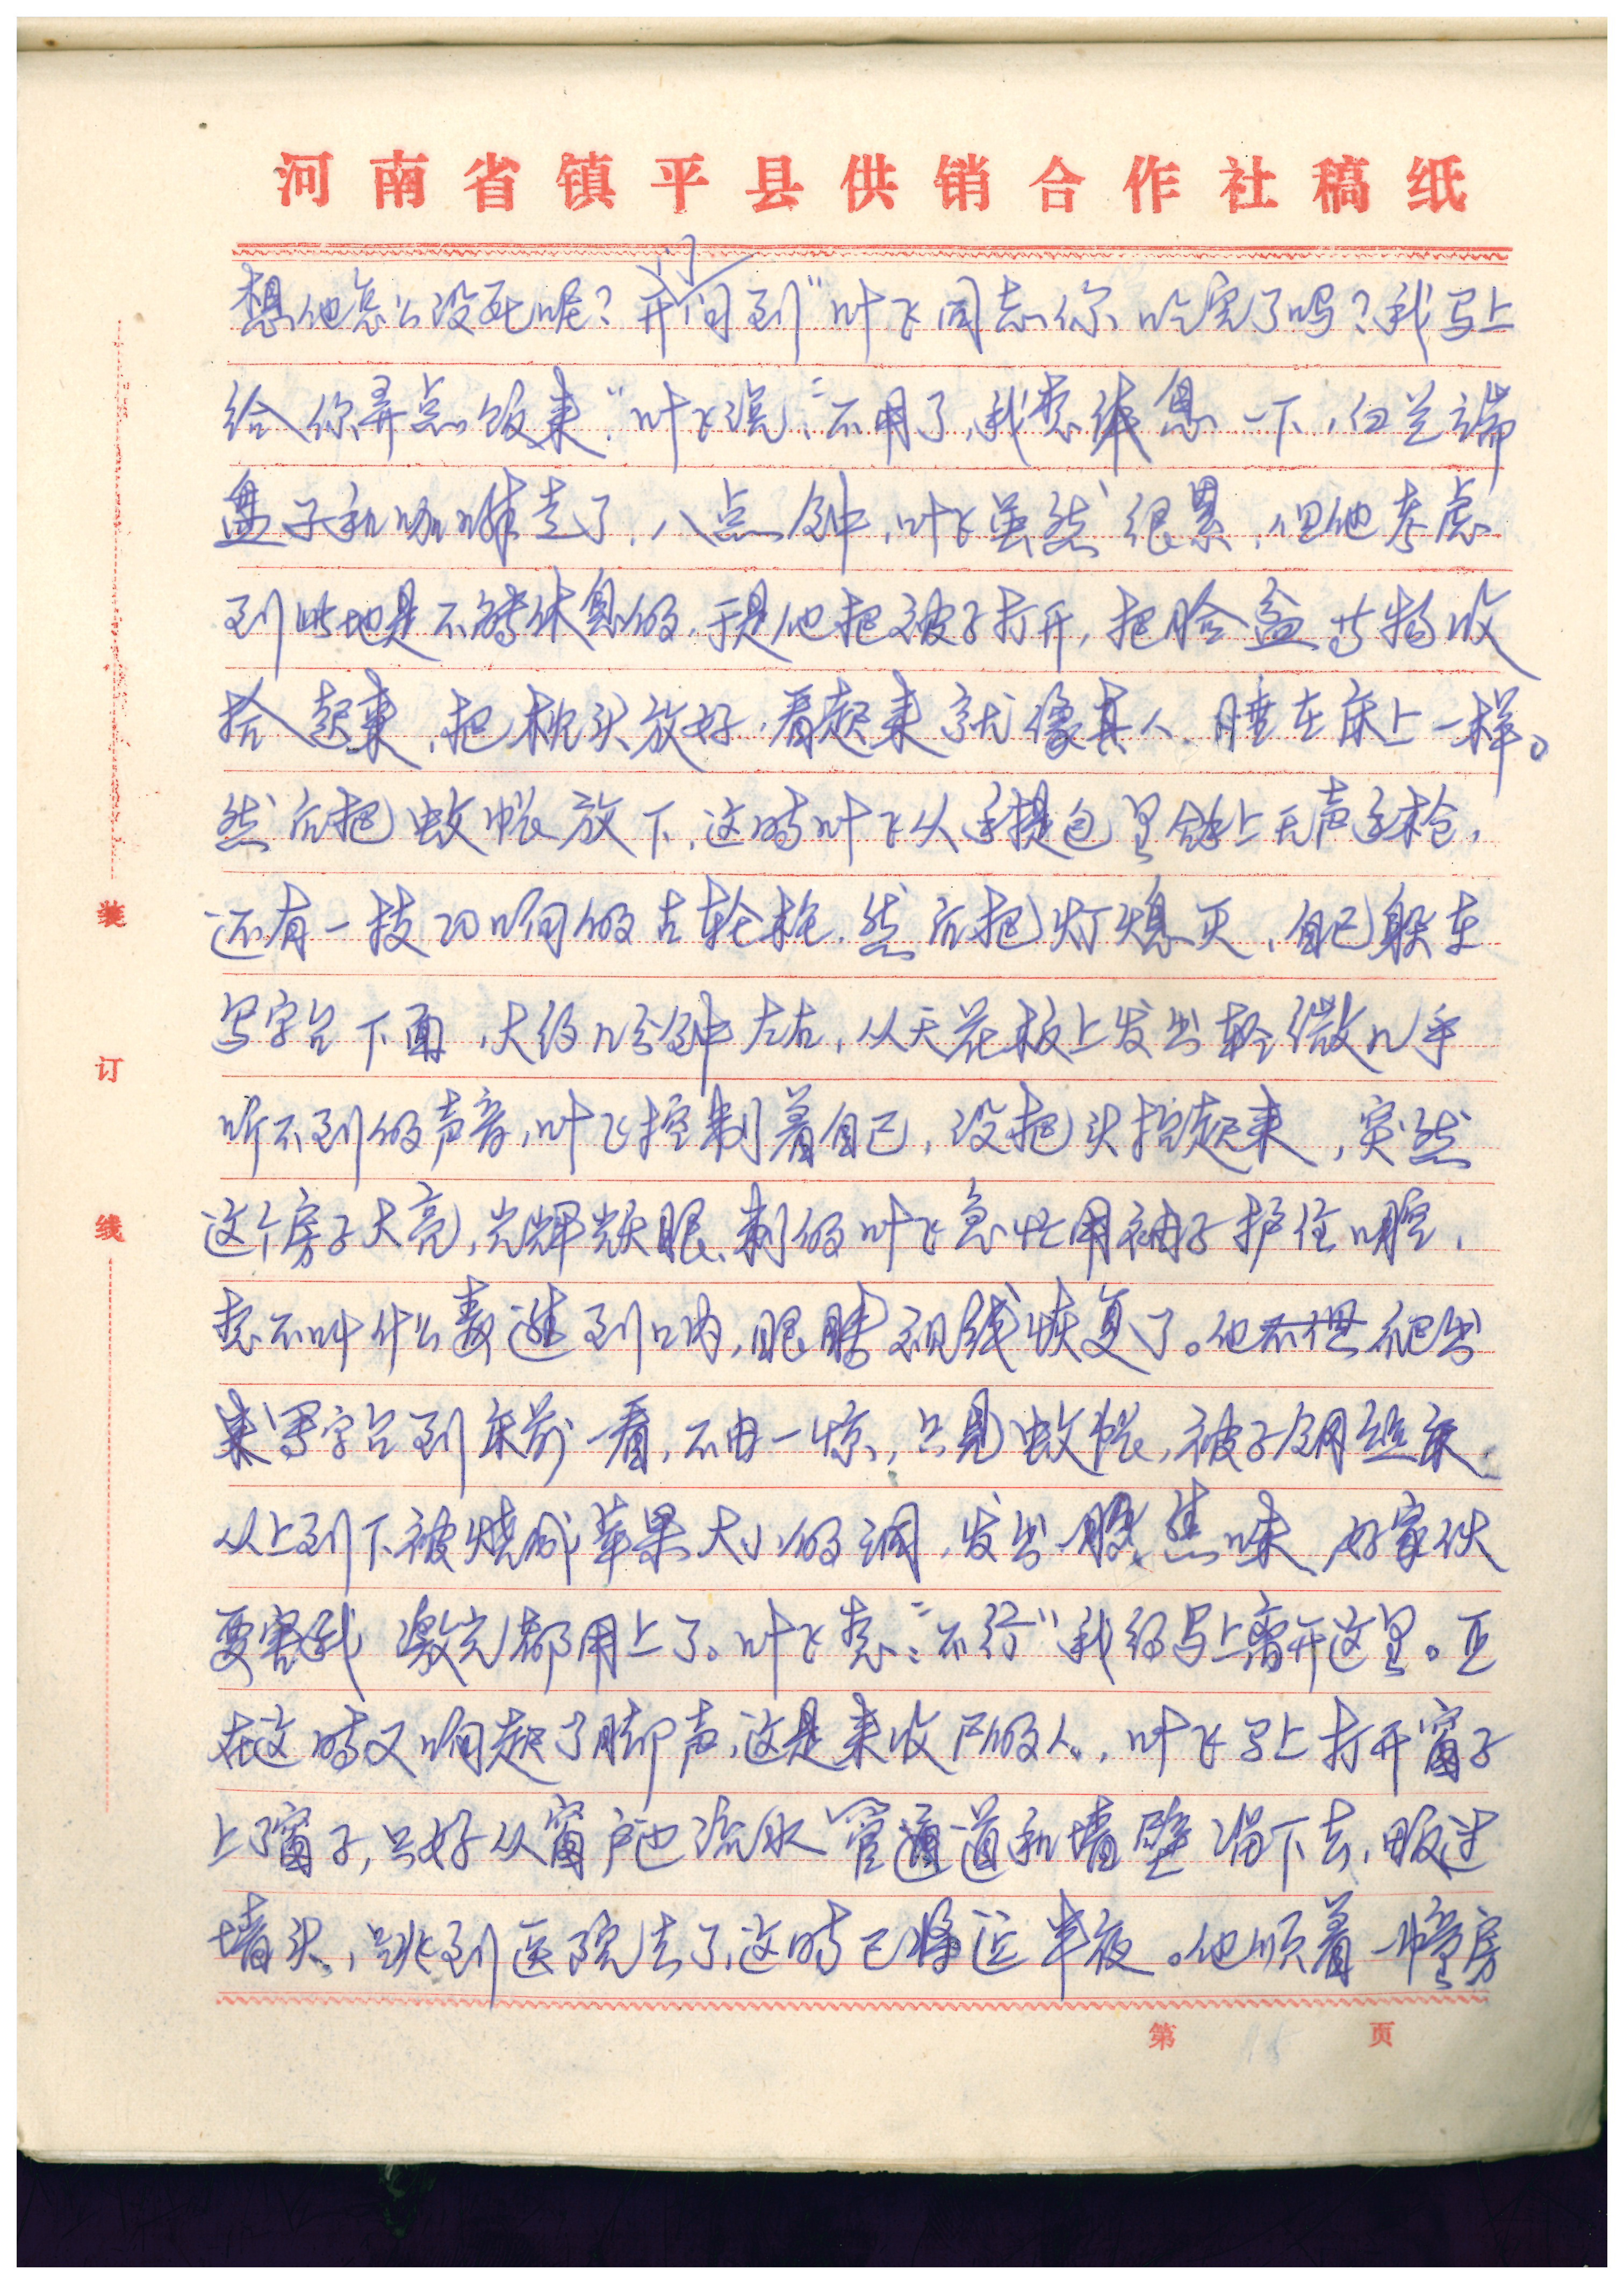 河南省镇平县供销合作社稿纸
想他怎么没死呢？开门问到“叶飞同志你吃完了吗？我马上
给你弄点饭来”叶飞说：“不用了，我想休息一下，白兰端
盘子和咖啡走了，八点钟，叶飞虽然很累，但他考虑
到此地是不能休息的，于是他把被子打开，把脸盆等物收
拾起来，把枕头放好，看起来就像真人睡在床上一样。
然后把蚊帐放下，这时叶飞从手提包里拿上无声手枪，
还有一技叨响的左轮枪，然后把灯熄灭，自己躲在
写字台下面，大约几分钟左右，从天花板上发出轻微几乎
听不到的声音，叶飞控制着自己，没把头抬起来，突然
这个房子大亮，光辉耀眼，刺的叶飞急忙用袖子护住眼睛，
想不叫什么毒进到口内，眼睛视线恢复了。他爬出
来写字台到床前一看，不由一惊，只见蚊帐，被子钢丝床
从上到下被烧成苹果大小的洞，发出一股焦味，好家伙
要害我激光都用上了。叶飞想：“不行”我得马上离开这里。正
在这时又响起了脚声，这是来收尸的人，叶飞马上打开窗子
上了窗子，只好从窗户边流水管通道和墙壁溜下去，翻过
墙头，跳到医院去了，这时已将近半夜。他顺着一幢房
装
订
线
第 页